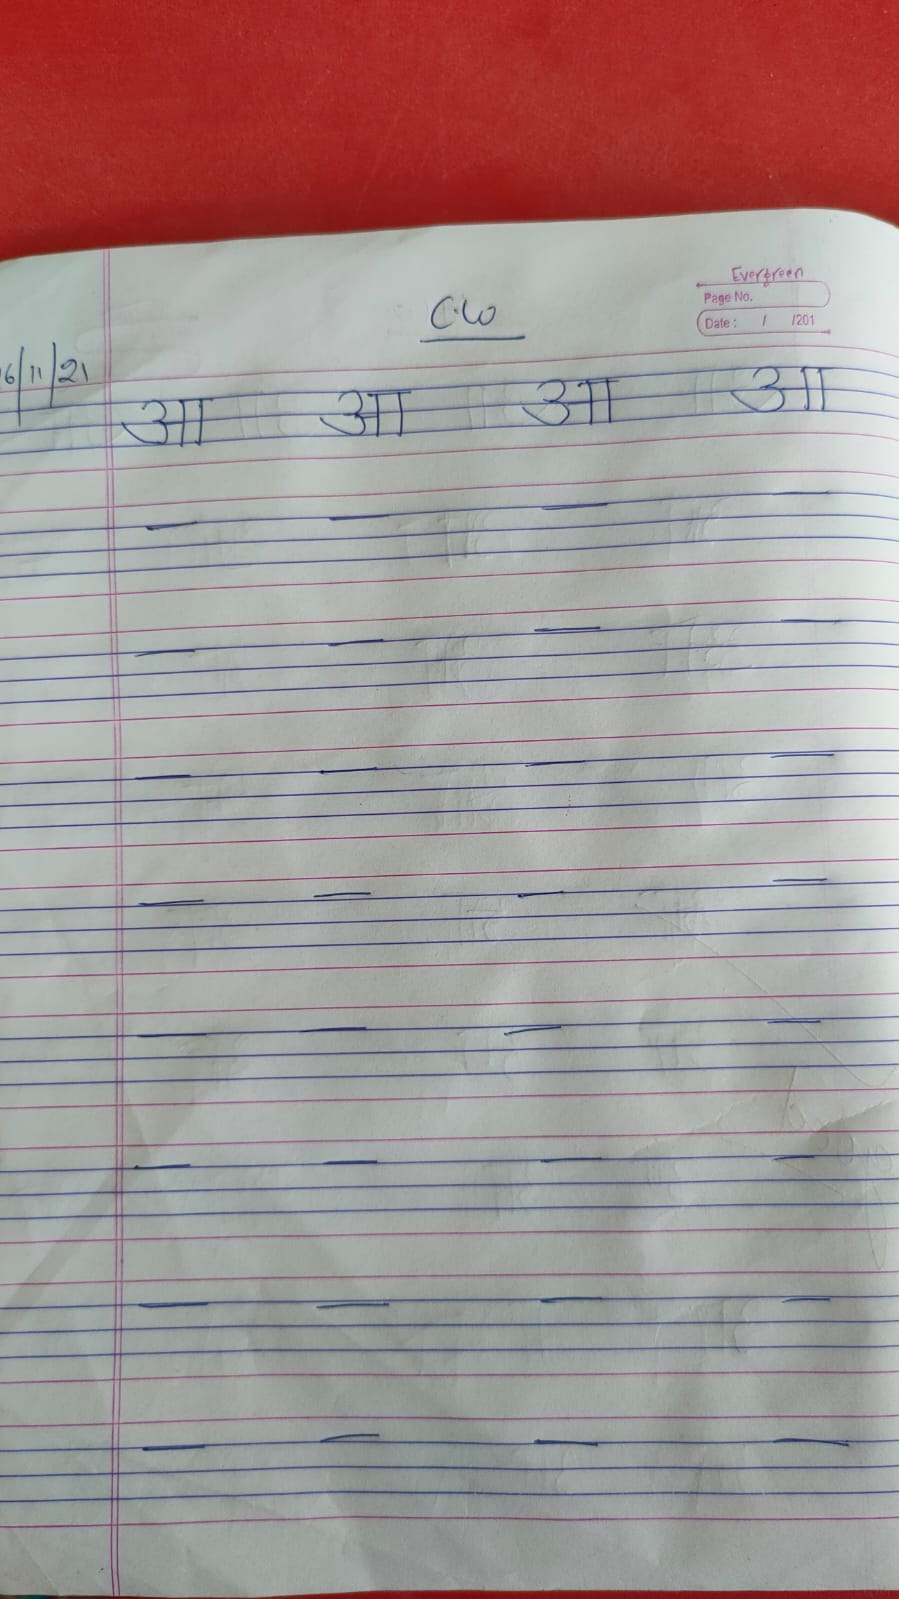 Evergreen
Page No.
Date : / /201
C.W
6/11/21
आ आ आ आ
— — — —
— — — —
— — — —
— — — —
— — — —
— — — —
— — — —
— — — —